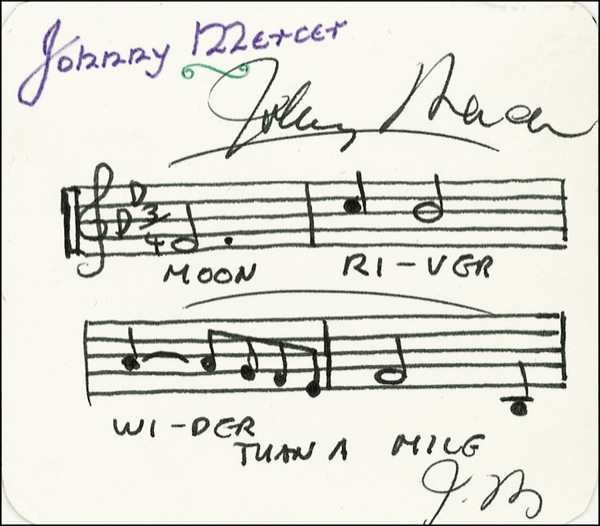 Johnny Mercer
Johnny Mercer
3
4
MOON RI-VER
WI-DER
THAN A MILE
J.M.